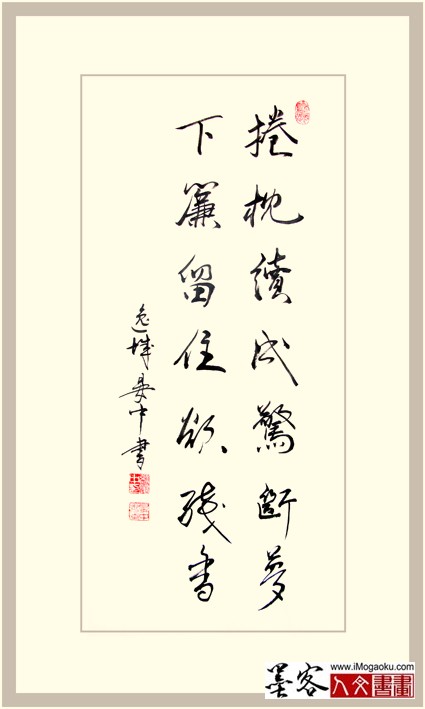 捲枕續成驚斷夢
下簾留住欲殘香
逸城晏中書
墨客
www.iMogaoku.com
人文書畫